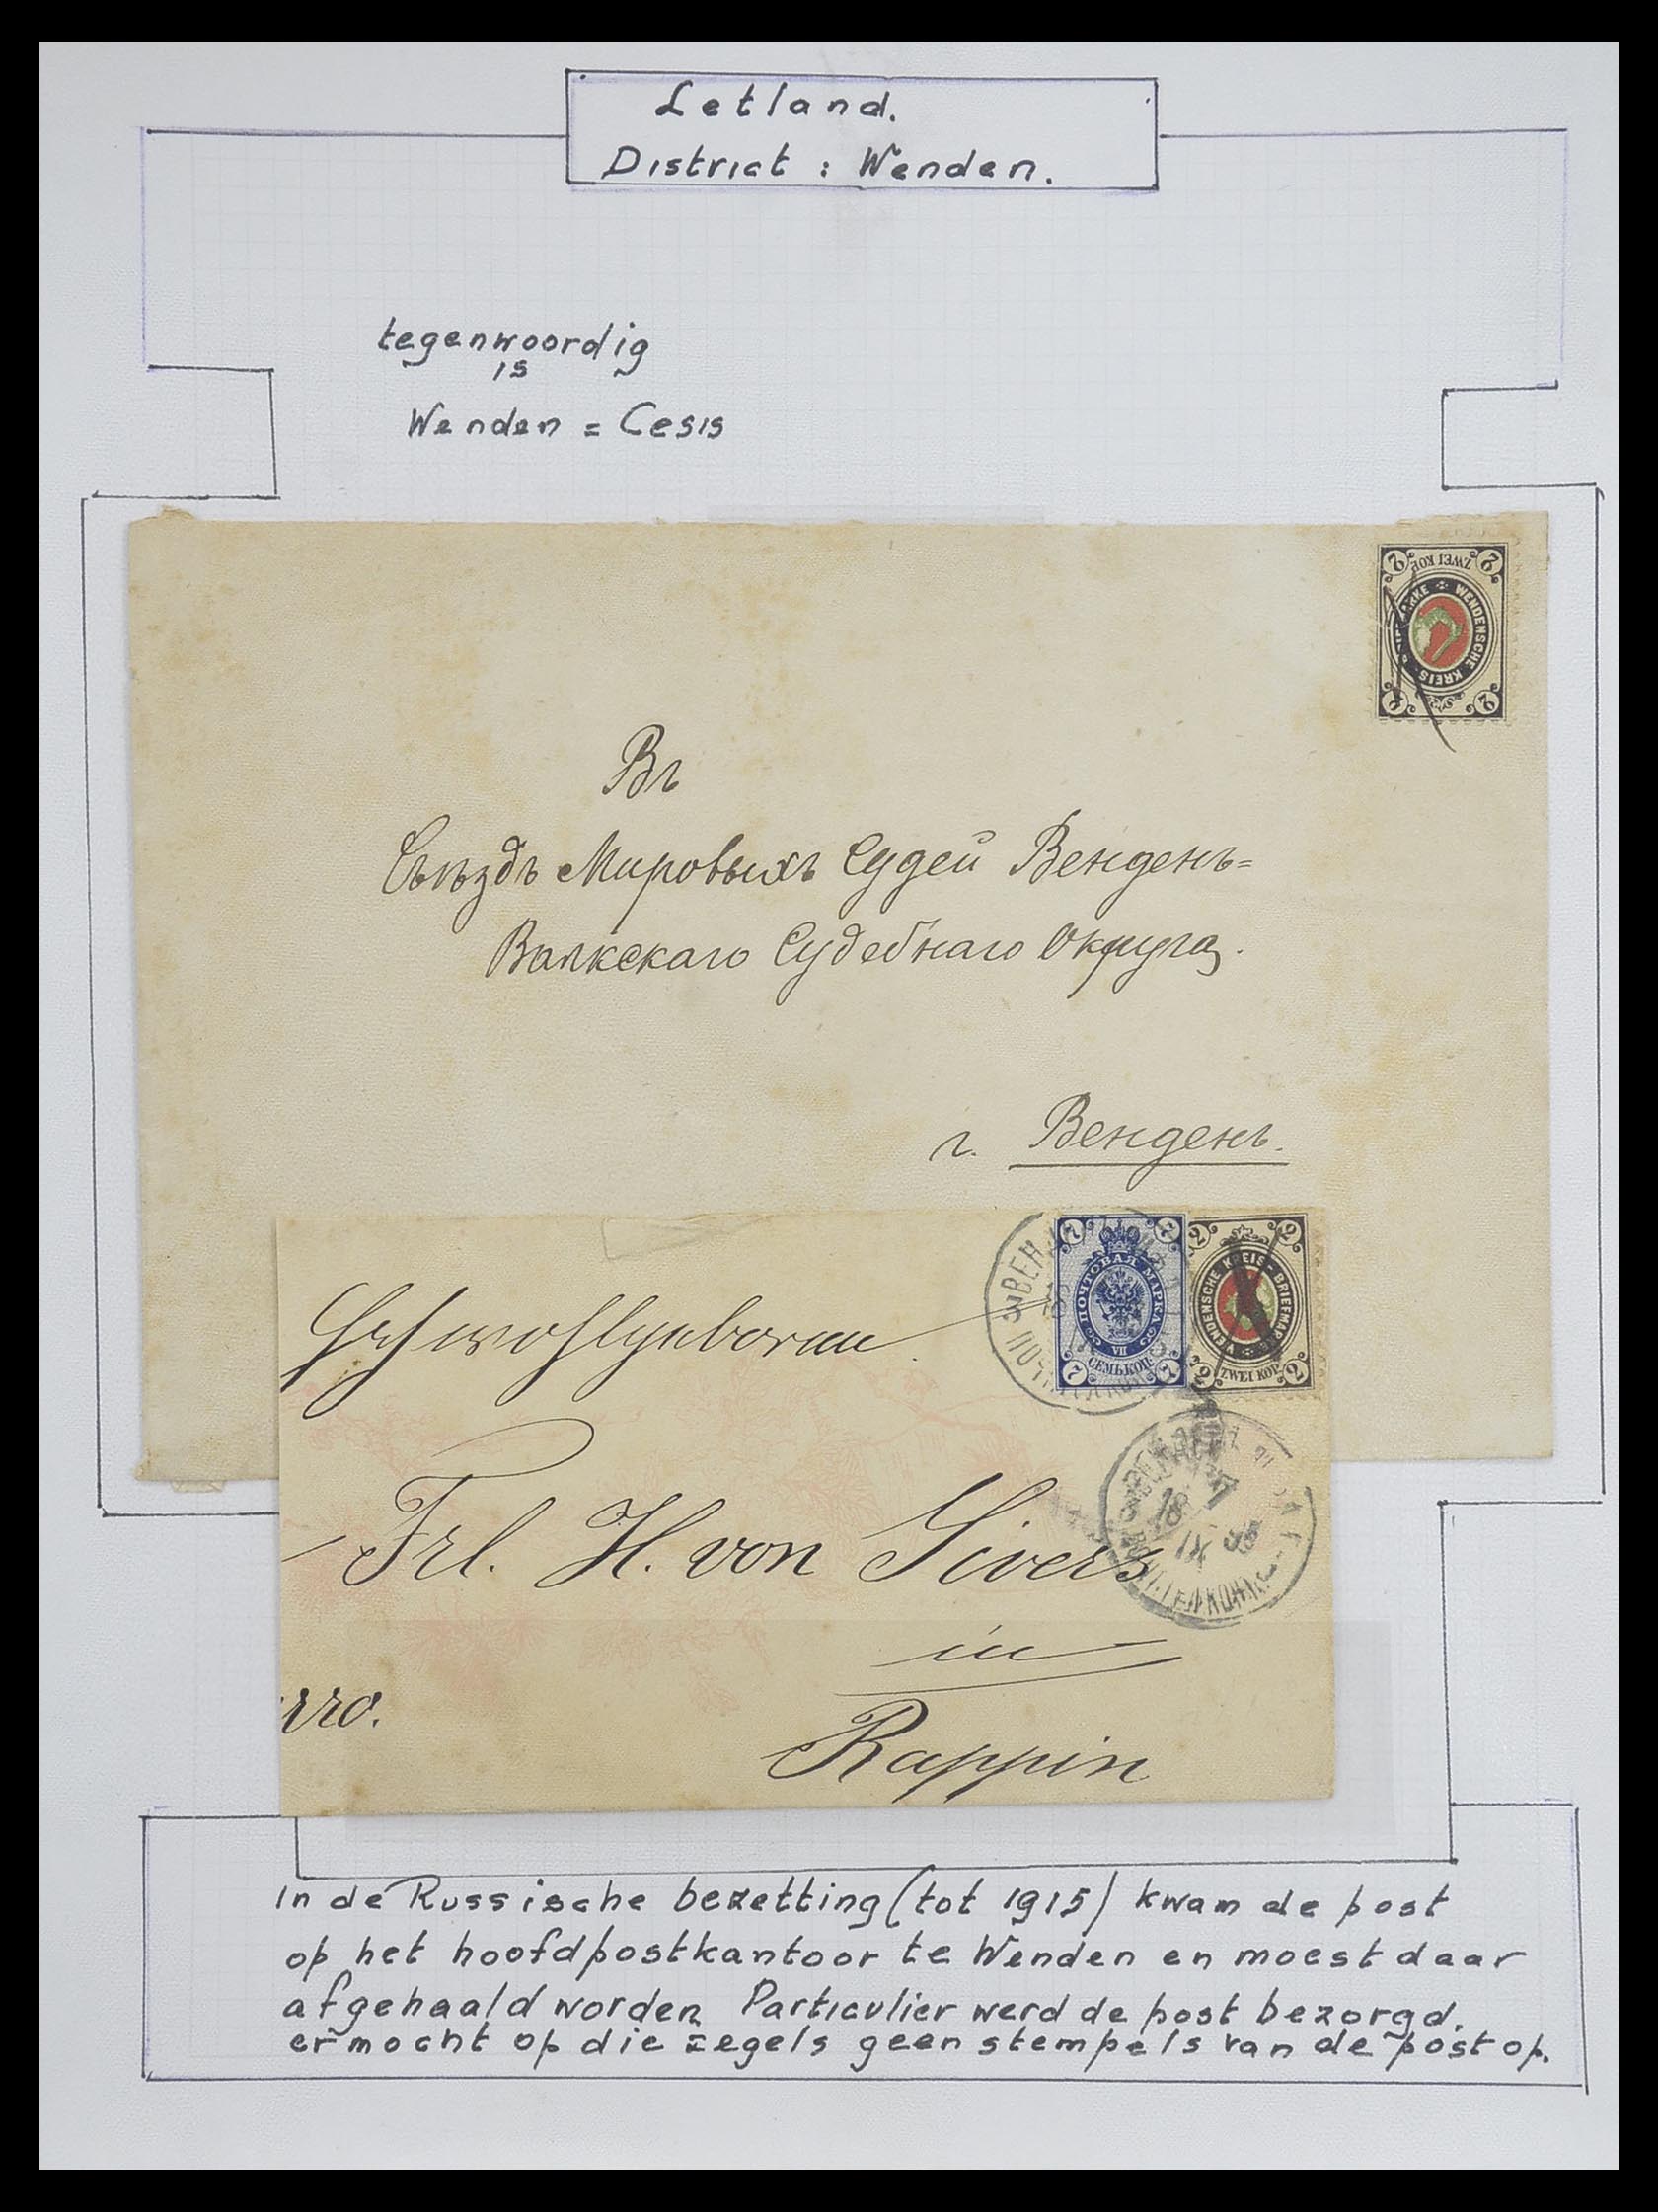 Letland.
District : Wenden.
tegenwoordig
is
Wenden = Cesis
2 ZWEI KOP. 2
WENDENSCHE KREIS-
2 2
Въ
Съѣздъ Мировыхъ Судей Венденъ=
Валкскаго Судебнаго Округа.
г. Венденъ.
7 7
ПОЧТОВАЯ МАРКА
VII
СЕМЬ КОП.
7 7
2 2
WENDENSCHE KREIS-BRIEFMAR
2 ZWEI KOP. 2
Hochwohlgeboren
18
IX
Frl. H. von Sivers
in
rro.
Rappin
In de Russische bezetting (tot 1915) kwam de post
op het hoofdpostkantoor te Wenden en moest daar
afgehaald worden Particulier werd de post bezorgd.
er mocht op die zegels geen stempels van de post op.